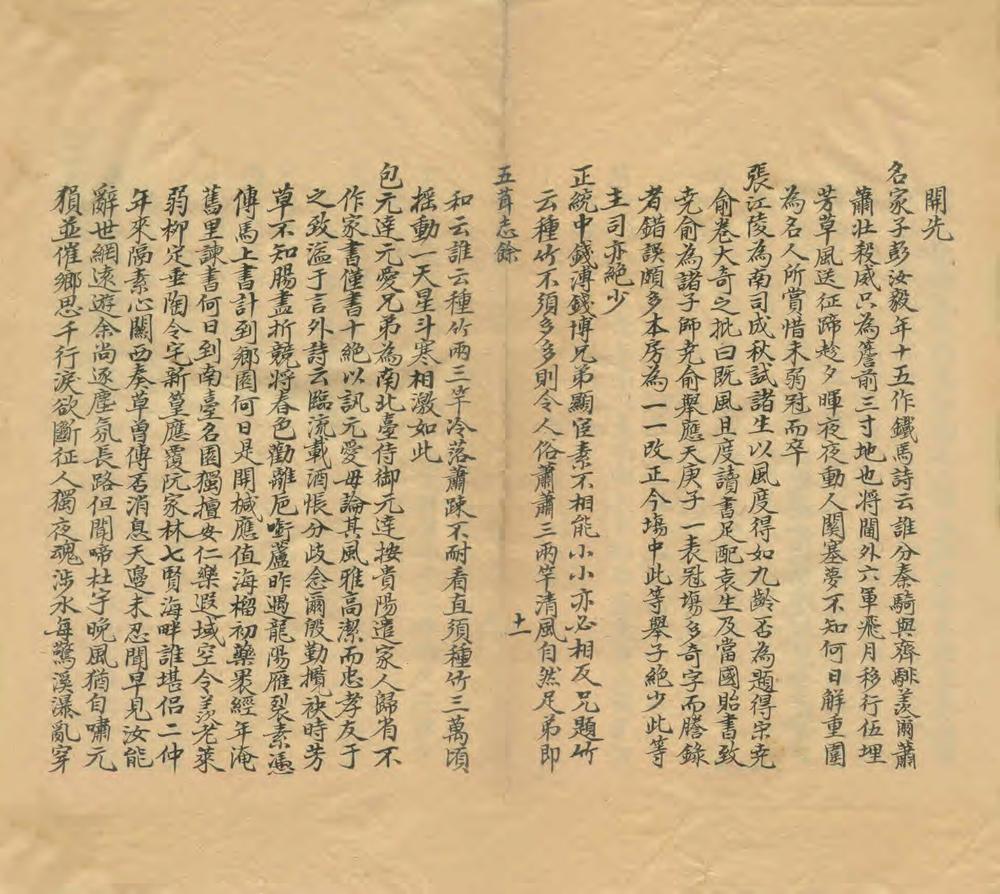 開先
名家子彭汝毅年十五作鐵馬詩云誰分秦騎與齊騑羨爾蕭
蕭壯殺威只為簷前三寸地也將閫外六軍飛月移行伍埋
芳草風送征蹄趁夕暉夜夜動人関塞夢不知何日解重圍
為名人所賞惜未弱冠而卒
張江陵為南司成秋試諸生以風度得如九齡否為題得宋堯
俞卷大奇之批曰既風且度讀書足配袁生及當國貽書致
堯俞為諸子師堯俞舉應天庚子一表冠塲多奇字而謄錄
者錯誤頗多本房為一一改正今塲中此等舉子絶少此等
主司亦絶少
正統中錢溥錢博兄弟顯宦素不相能小小亦必相反兄題竹
云種竹不須多多則令人俗蕭蕭三兩竿清風自然足弟即
五茸志餘
十一
和云誰云種竹兩三竿冷落蕭踈不耐看直須種竹三萬頃
揺動一天星斗寒相激如此
包元達元愛兄弟為南北臺侍御元達按貴陽遣家人歸省不
作家書僅書十絶以訊元愛毋論其風雅高潔而忠孝友于
之致溢于言外詩云臨流載酒悵分歧念爾殷勤攬袂時芳
草不知腸盡折競將春色勸離巵啣蘆昨過龍陽雁裂素憑
傳馬上書計到鄉園何日是開椷應值海榴初藥褁經年淹
舊里諫書何日到南臺名園獨擅安仁樂遐域空令羨老萊
弱柳定垂陶令宅新篁應覆阮家林七賢海畔誰堪侣二仲
年來隔素心關西奏草曽傳否消息天邊未忍聞早見汝能
辭世網遠遊余尚逐塵氛長路但聞啼杜宇晚風猶自嘯元
猿並催鄉思千行淚欲斷征人獨夜魂涉水每驚溪瀑亂穿